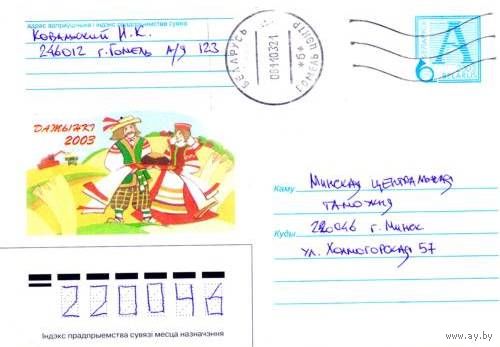 Адрас адпраўшчыка і індэкс прадпрыемства сувязі
Ковальский И.К.
246012 г.Гомель а/я 123
БЕЛАРУСЬ
ПОШТА
ГОМЕЛЬ
081103 21
*6*
А
БЕЛАРУСЬ
BELARUS
ДАЖЫНКІ
2003
Каму Минская центральная
таможня
Куды 220046 г. Минск
ул. Холмогорская 57
220046
Індэкс прадпрыемства сувязі месца назначэння
www.ay.by